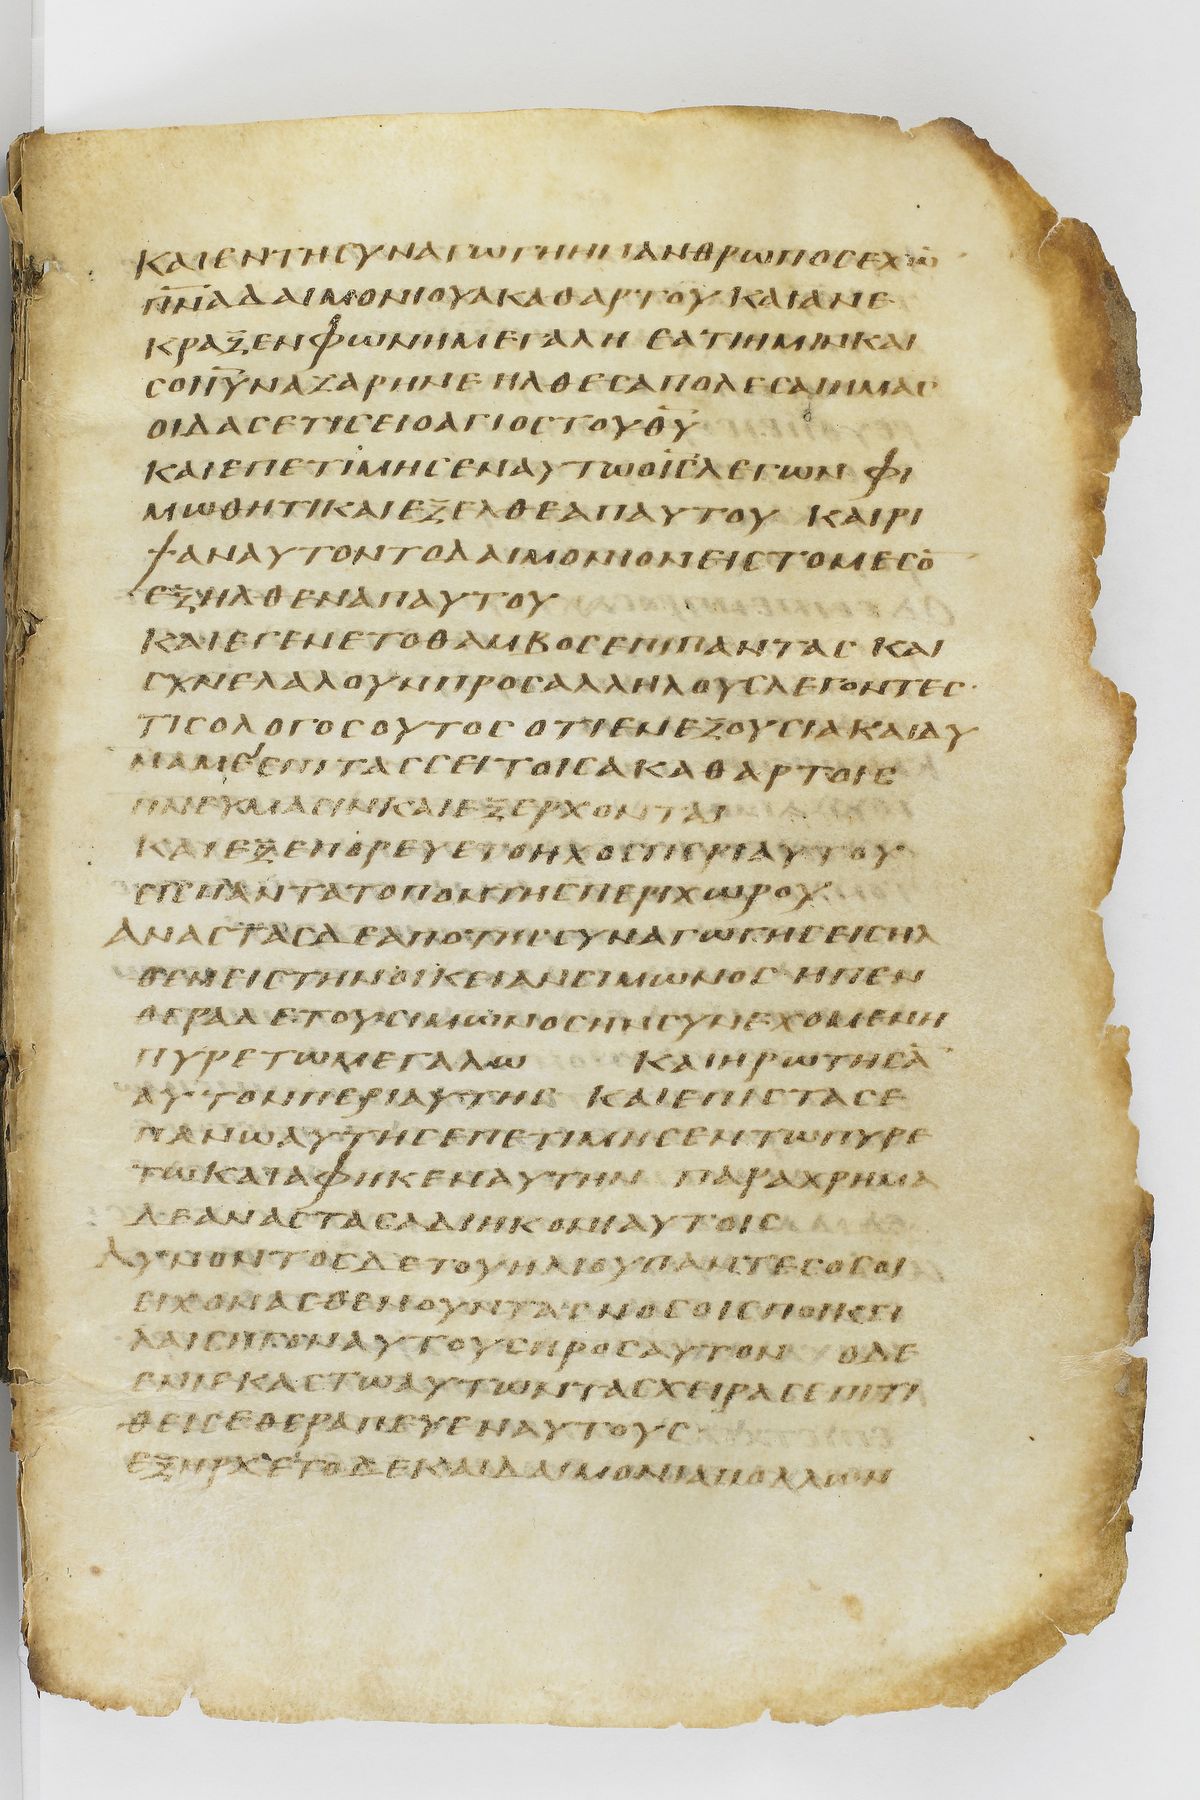 ΚΑΙΕΝΤΗϹΥΝΑΓΩΓΗΗΝΑΝΘΡΩΠΟϹΕΧΩ̅
Π̅Ν̅ΑΔΑΙΜΟΝΙΟΥΑΚΑΘΑΡΤΟΥ ΚΑΙΑΝΕ
ΚΡΑΞΕΝΦΩΝΗΜΕΓΑΛΗ ΕΑΤΙΗΜΙΝΚΑΙ
ϹΟΙΙ̅Υ̅ΝΑΖΑΡΗΝΕ ΗΛΘΕϹΑΠΟΛΕϹΑΙΗΜΑϹ
ΟΙΔΑϹΕΤΙϹΕΙΟΑΓΙΟϹΤΟΥΘ̅Υ̅
ΚΑΙΕΠΕΤΙΜΗϹΕΝΑΥΤΩΟΙ̅Ϲ̅ΛΕΓΩΝ ΦΙ
ΜΩΘΗΤΙΚΑΙΕΞΕΛΘΕΑΠΑΥΤΟΥ ΚΑΙΡΙ
ΨΑΝΑΥΤΟΝΤΟΔΑΙΜΟΝΙΟΝΕΙϹΤΟΜΕϹΟ̅
ΕΞΗΛΘΕΝΑΠΑΥΤΟΥ
ΚΑΙΕΓΕΝΕΤΟΘΑΜΒΟϹΕΠΙΠΑΝΤΑϹ ΚΑΙ
ϹΥΝΕΛΑΛΟΥΝΠΡΟϹΑΛΛΗΛΟΥϹΛΕΓΟΝΤΕϹ
ΤΙϹΟΛΟΓΟϹΟΥΤΟϹ ΟΤΙΕΝΕΞΟΥϹΙΑΚΑΙΔΥ
ΝΑΜΕΙΕΠΙΤΑϹϹΕΙΤΟΙϹΑΚΑΘΑΡΤΟΙϹ
ΠΝΕΥΜΑϹΙΝΚΑΙΕΞΕΡΧΟΝΤΑΙ
ΚΑΙΕΞΕΠΟΡΕΥΕΤΟΗΧΟϹΠΕΡΙΑΥΤΟΥ
ΕΙϹΠΑΝΤΑΤΟΠΟΝΤΗϹΠΕΡΙΧΩΡΟΥ
ΑΝΑϹΤΑϹΔΕΑΠΟΤΗϹϹΥΝΑΓΩΓΗϹΕΙϹΗΛ
ΘΕΝΕΙϹΤΗΝΟΙΚΕΙΑΝϹΙΜΩΝΟϹ ΗΠΕΝ
ΘΕΡΑΔΕΤΟΥϹΙΜΩΝΟϹΗΝϹΥΝΕΧΟΜΕΝΗ
ΠΥΡΕΤΩΜΕΓΑΛΩ ΚΑΙΗΡΩΤΗϹΑ̅
ΑΥΤΟΝΠΕΡΙΑΥΤΗϹ ΚΑΙΕΠΙϹΤΑϹΕ
ΠΑΝΩΑΥΤΗϹΕΠΕΤΙΜΗϹΕΝΤΩΠΥΡΕ
ΤΩΚΑΙΑΦΗΚΕΝΑΥΤΗΝ ΠΑΡΑΧΡΗΜΑ
ΔΕΑΝΑϹΤΑϹΑΔΙΗΚΟΝΙΑΥΤΟΙϹ
ΔΥΝΟΝΤΟϹΔΕΤΟΥΗΛΙΟΥΠΑΝΤΕϹΟϹΟΙ
ΕΙΧΟΝΑϹΘΕΝΟΥΝΤΑϹΝΟϹΟΙϹΠΟΙΚΙ
ΛΑΙϹΗΓΟΝΑΥΤΟΥϹΠΡΟϹΑΥΤΟΝ ΟΔΕ
ΕΝΙΕΚΑϹΤΩΑΥΤΩΝΤΑϹΧΕΙΡΑϹΕΠΙΤΙ
ΘΕΙϹΕΘΕΡΑΠΕΥΕΝΑΥΤΟΥϹ
ΕΞΗΡΧΕΤΟΔΕΚΑΙΔΑΙΜΟΝΙΑΠΟΛΛΩΝ